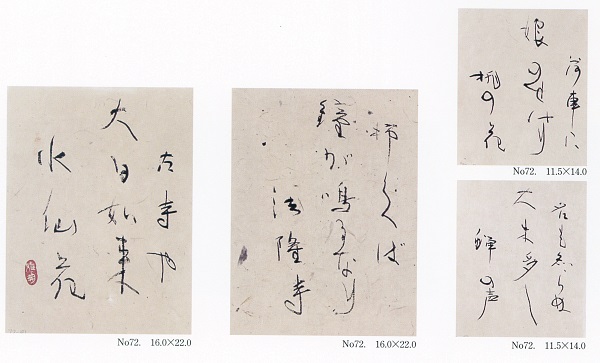 古寺や
大日如来
水仙花
No72. 16.0×22.0
柿くへば
鐘が鳴るなり
法隆寺
No72. 16.0×22.0
荷車に
娘のせけり
桃の花
No72. 11.5×14.0
名も志らぬ
大木多し
蝉の声
No72. 11.5×14.0